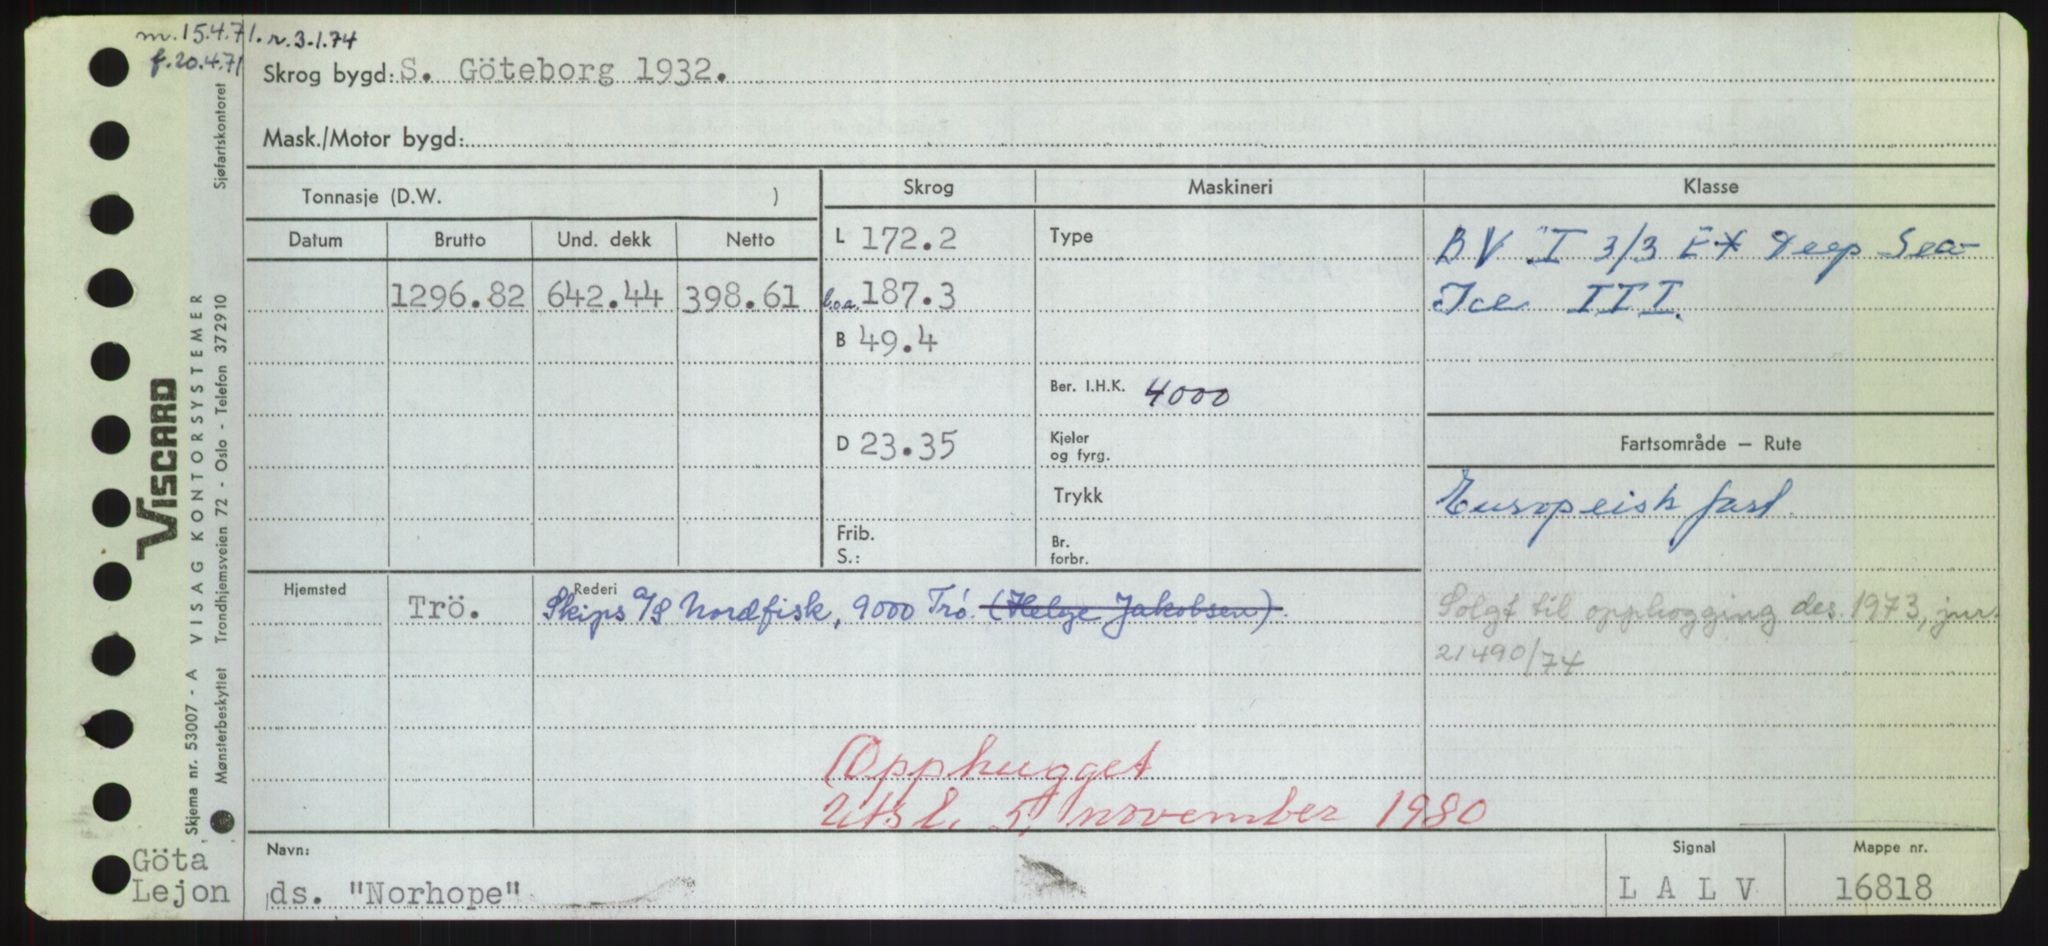 m. 15.4.71. r. 3.1.74
f. 20.4.71
Skrog bygd: S. Göteborg 1932.
Mask./Motor bygd:
Tonnasje (D.W. )
Skrog
Maskineri
Klasse
Datum Brutto Und. dekk Netto
1296.82 642.44 398.61
L 172.2
l.o.a. 187.3
B 49.4
D 23.35
Frib.
S.:
Type
Ber. I.H.K. 4000
Kjeler
og fyrg.
Trykk
Br.
forbr.
BV I 3/3 E✶ Deep Sea
Ice III.
Fartsområde – Rute
Europeisk fart.
Solgt til opphogging des. 1973, jnr.
21490/74
Hjemsted
Trö.
Rederi
Skips A/S Nordfisk, 9000 Trö. (Helge Jakobsen).
Opphugget
Utsl. 5. november 1980
Navn:
ds. "Norhope"
Signal
L A L V
Mappe nr.
16818
Göta
Lejon
VISCARD
Skjema nr. 53007 - A VISAG KONTORSYSTEMER
Mønsterbeskyttet Trondhjemsveien 72 - Oslo - Telefon 372910 Sjøfartskontoret